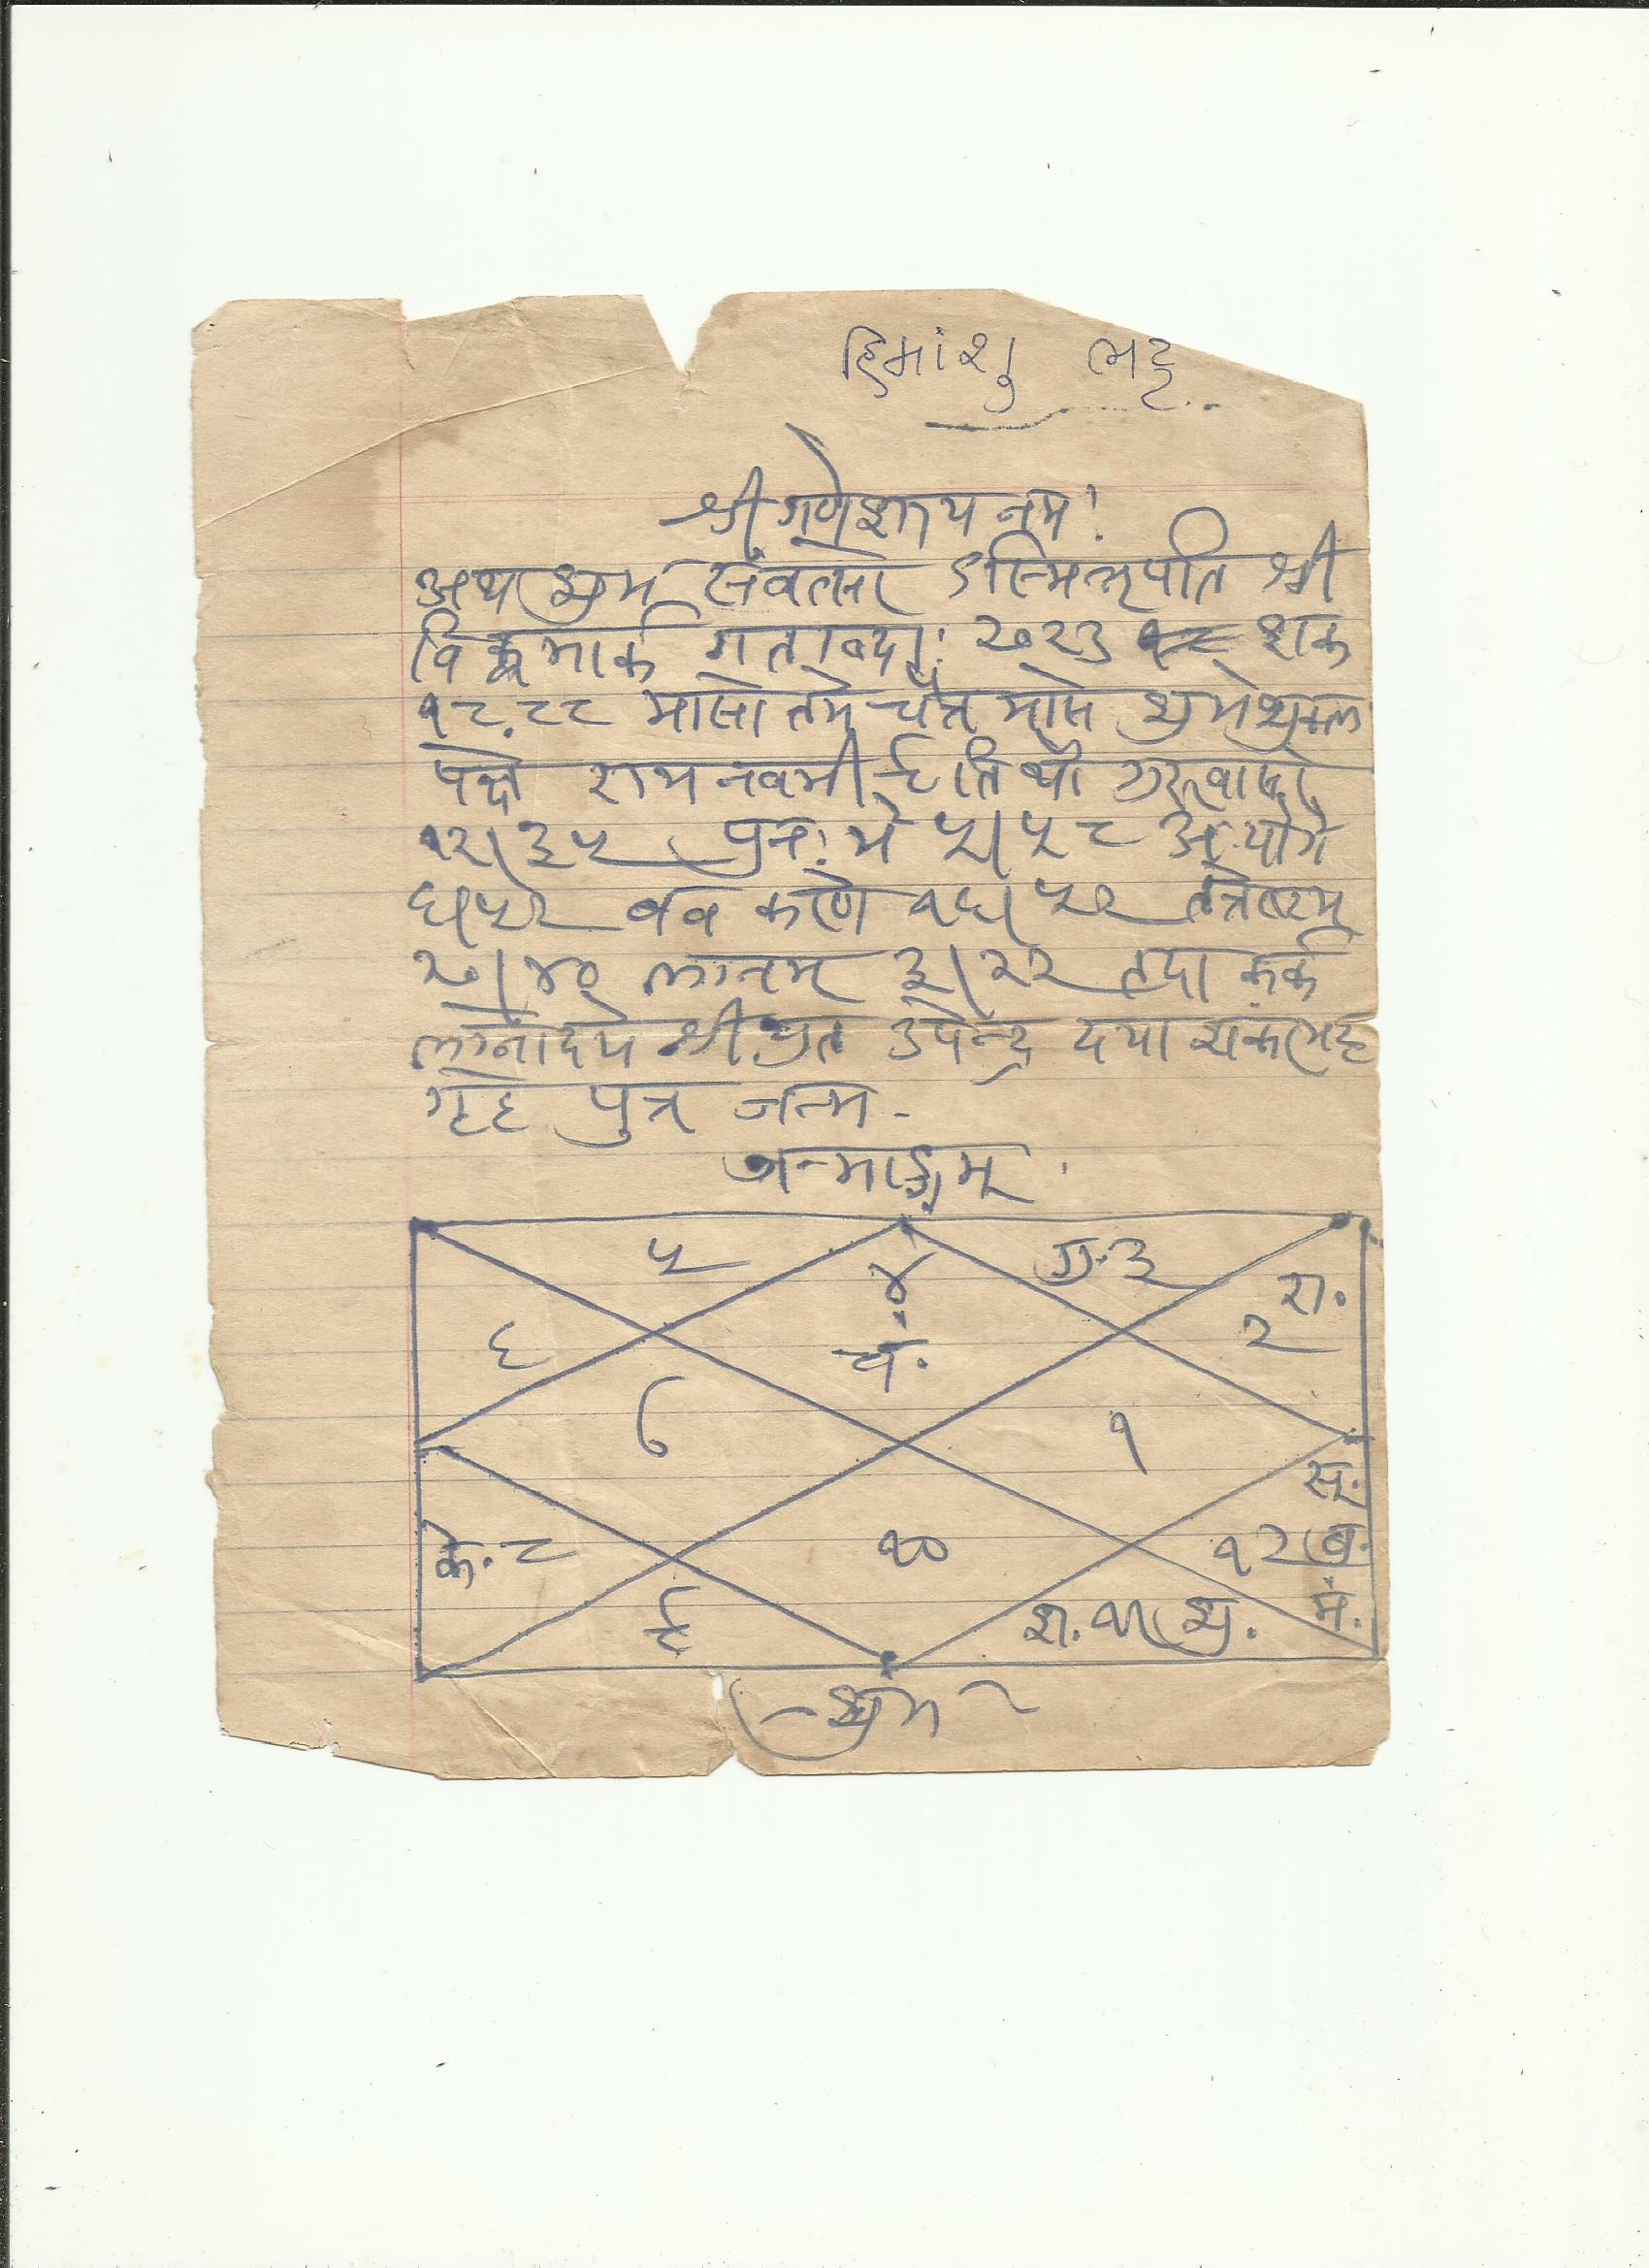 हिमांशु भट्ट
श्री गणेशाय नमः
अथ शुभ संवत्सरे ऽस्मिन्नृपति श्री
विक्रमार्क गताब्दाः २०२३ शक
१८८८ मासोतमे चैत्र मासे शुभेशुक्ल
पक्षे रामनवमी ९ तिथौ गुरुवासरे
१२।३५ पुनः भे ५।५८ अ.योगे
६।५२ बव करणे १६।५२
२७।४९ लग्नम् ३।२२ तदा कर्क
लग्नोदये श्रीयुत उपेन्द्र दया शंकर भट्ट
गृहे पुत्र जन्म -
जन्माङ्गम्
५ ४ गु. ३
६ चं. रा. २
७ १
के. ८ १० १२ सू. बु. मं.
९ श. ११ शु.
शुभं